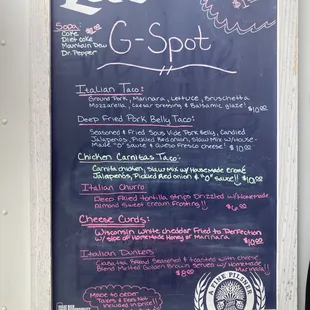 Soda:
Coke
Diet Coke
Mountain Dew
Dr. Pepper
G-Spot
Italian Taco:
Ground Pork, Marinara, Lettuce, Bruschetta
Mozzarella, Caesar dressing & Balsamic glaze! $10.00
Deep Fried Pork Belly Taco:
Seasoned & Fried Sous Vide Pork Belly, Candied
Jalapenos, Pickled Red onion, Slaw Mix w/House-
Made "O" Sauce & Queso Fresco Cheese! $10.00
Chicken Carnitas Taco:
Carnita chicken, Slaw Mix w/Homemade Creme
Jalapenos, Pickled Red onion & "O" Sauce!! $10.00
Italian Churro
Deep Fried tortilla strips Drizzled w/Homemade
Almond Sweet Cream Frosting!! $6.00
Cheese Curds:
Wisconsin White cheddar Fried to Perfection
w/ side of Homemade Honey or Marinara $10.00
Italian Dunkers
Ciabatta Bread Seasoned & toasted with cheese
Blend Melted Golden Brown Served w/ Homemade
Marinara!!
$8.00
Made to order
Taxes & Fees Not
included in price!!
A FINE PILSNER